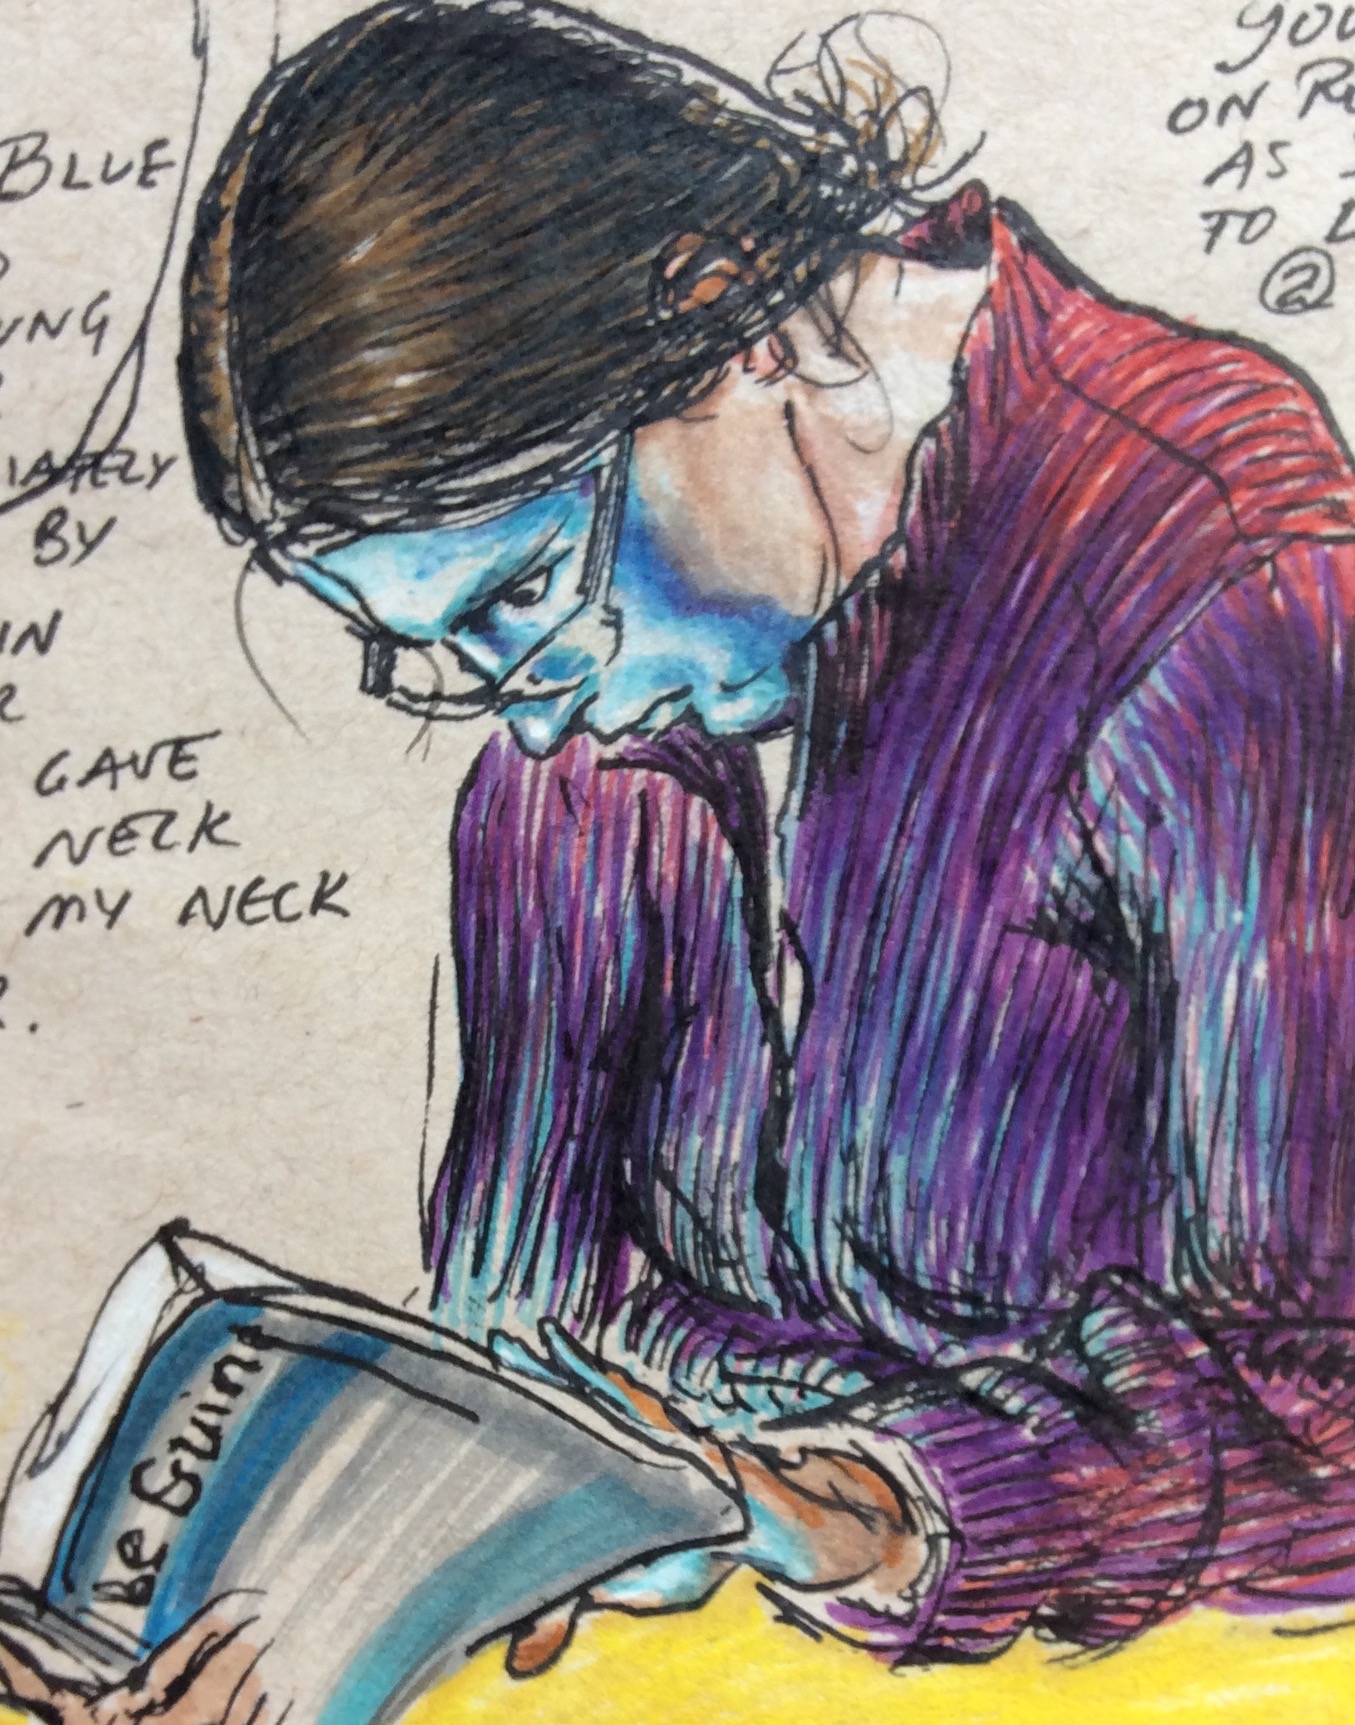 BLUE
UNG
IATELY
BY
IN
GAVE
NECK
MY NECK
R.
YOU
ON
AS
TO
②
Be Guing